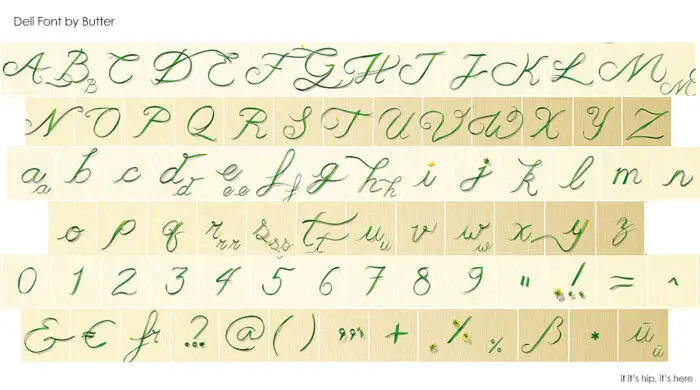 Deli Font by Butter
A B B C D E F G H I J K L M M
N O P Q R S T U V W X Y Z
a a b c d d e e e f f g h h i j k l m n
o p q r r r s s s t t u u v w w x y z
0 1 2 3 4 5 6 7 8 9 " ! = ^
& € fr ? @ ( ) , , , + % % ß * ü ü
if it's hip, it's here